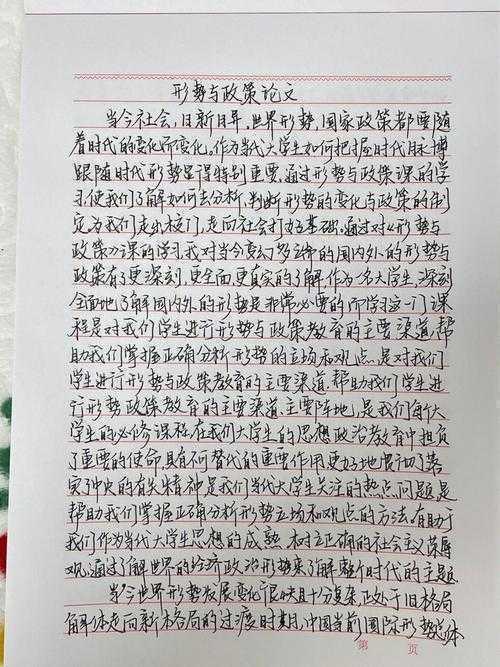 形势与政策论文
当今社会,日新月异,世界形势,国家政策都要随
着时代的变化而变化。作为当代大学生如何把握时代脉搏
跟随时代形势显得特别重要。通过形势与政策课的学
习,使我们了解如何去分析,判断形势的变化与政策的制
定为我们走出校门,走向社会打好基础。通过对《形势与
政策》课的学习,我对当今变幻多端的国内外的形势与
政策有了更深刻,更全面,更直观的了解作为一名大学生,深刻
全面地了解国内外的形势是非常必要的而学习这一门课
程是对我们学生进行形势与政策教育的主要渠道,帮
助我们掌握正确分析形势的立场和观点,是对我们
学生进行形势与政策教育的主要渠道,帮助我们学生进
行形势政策教育的主要渠道,主要阵地,是我们每个大
学生的必修课程,在我们大学生的思想政治教育中担负
了重要的使命,具有不可替代的重要作用更好地贯彻落
实中央的有关精神是我们当代大学生关注的热点问题是
帮助我们掌握正确分析形势立场和观点的方法。有助于
我们作为当代大学生思想的成熟,树立正确的社会主义荣辱
观,通过了解世界的经济政治形势来了解整个时代的主题
当今世界形势发展变化很快且十分复杂,正处于旧格局
解体走向新格局的过渡时期,中国当前国际形势总体
第 页